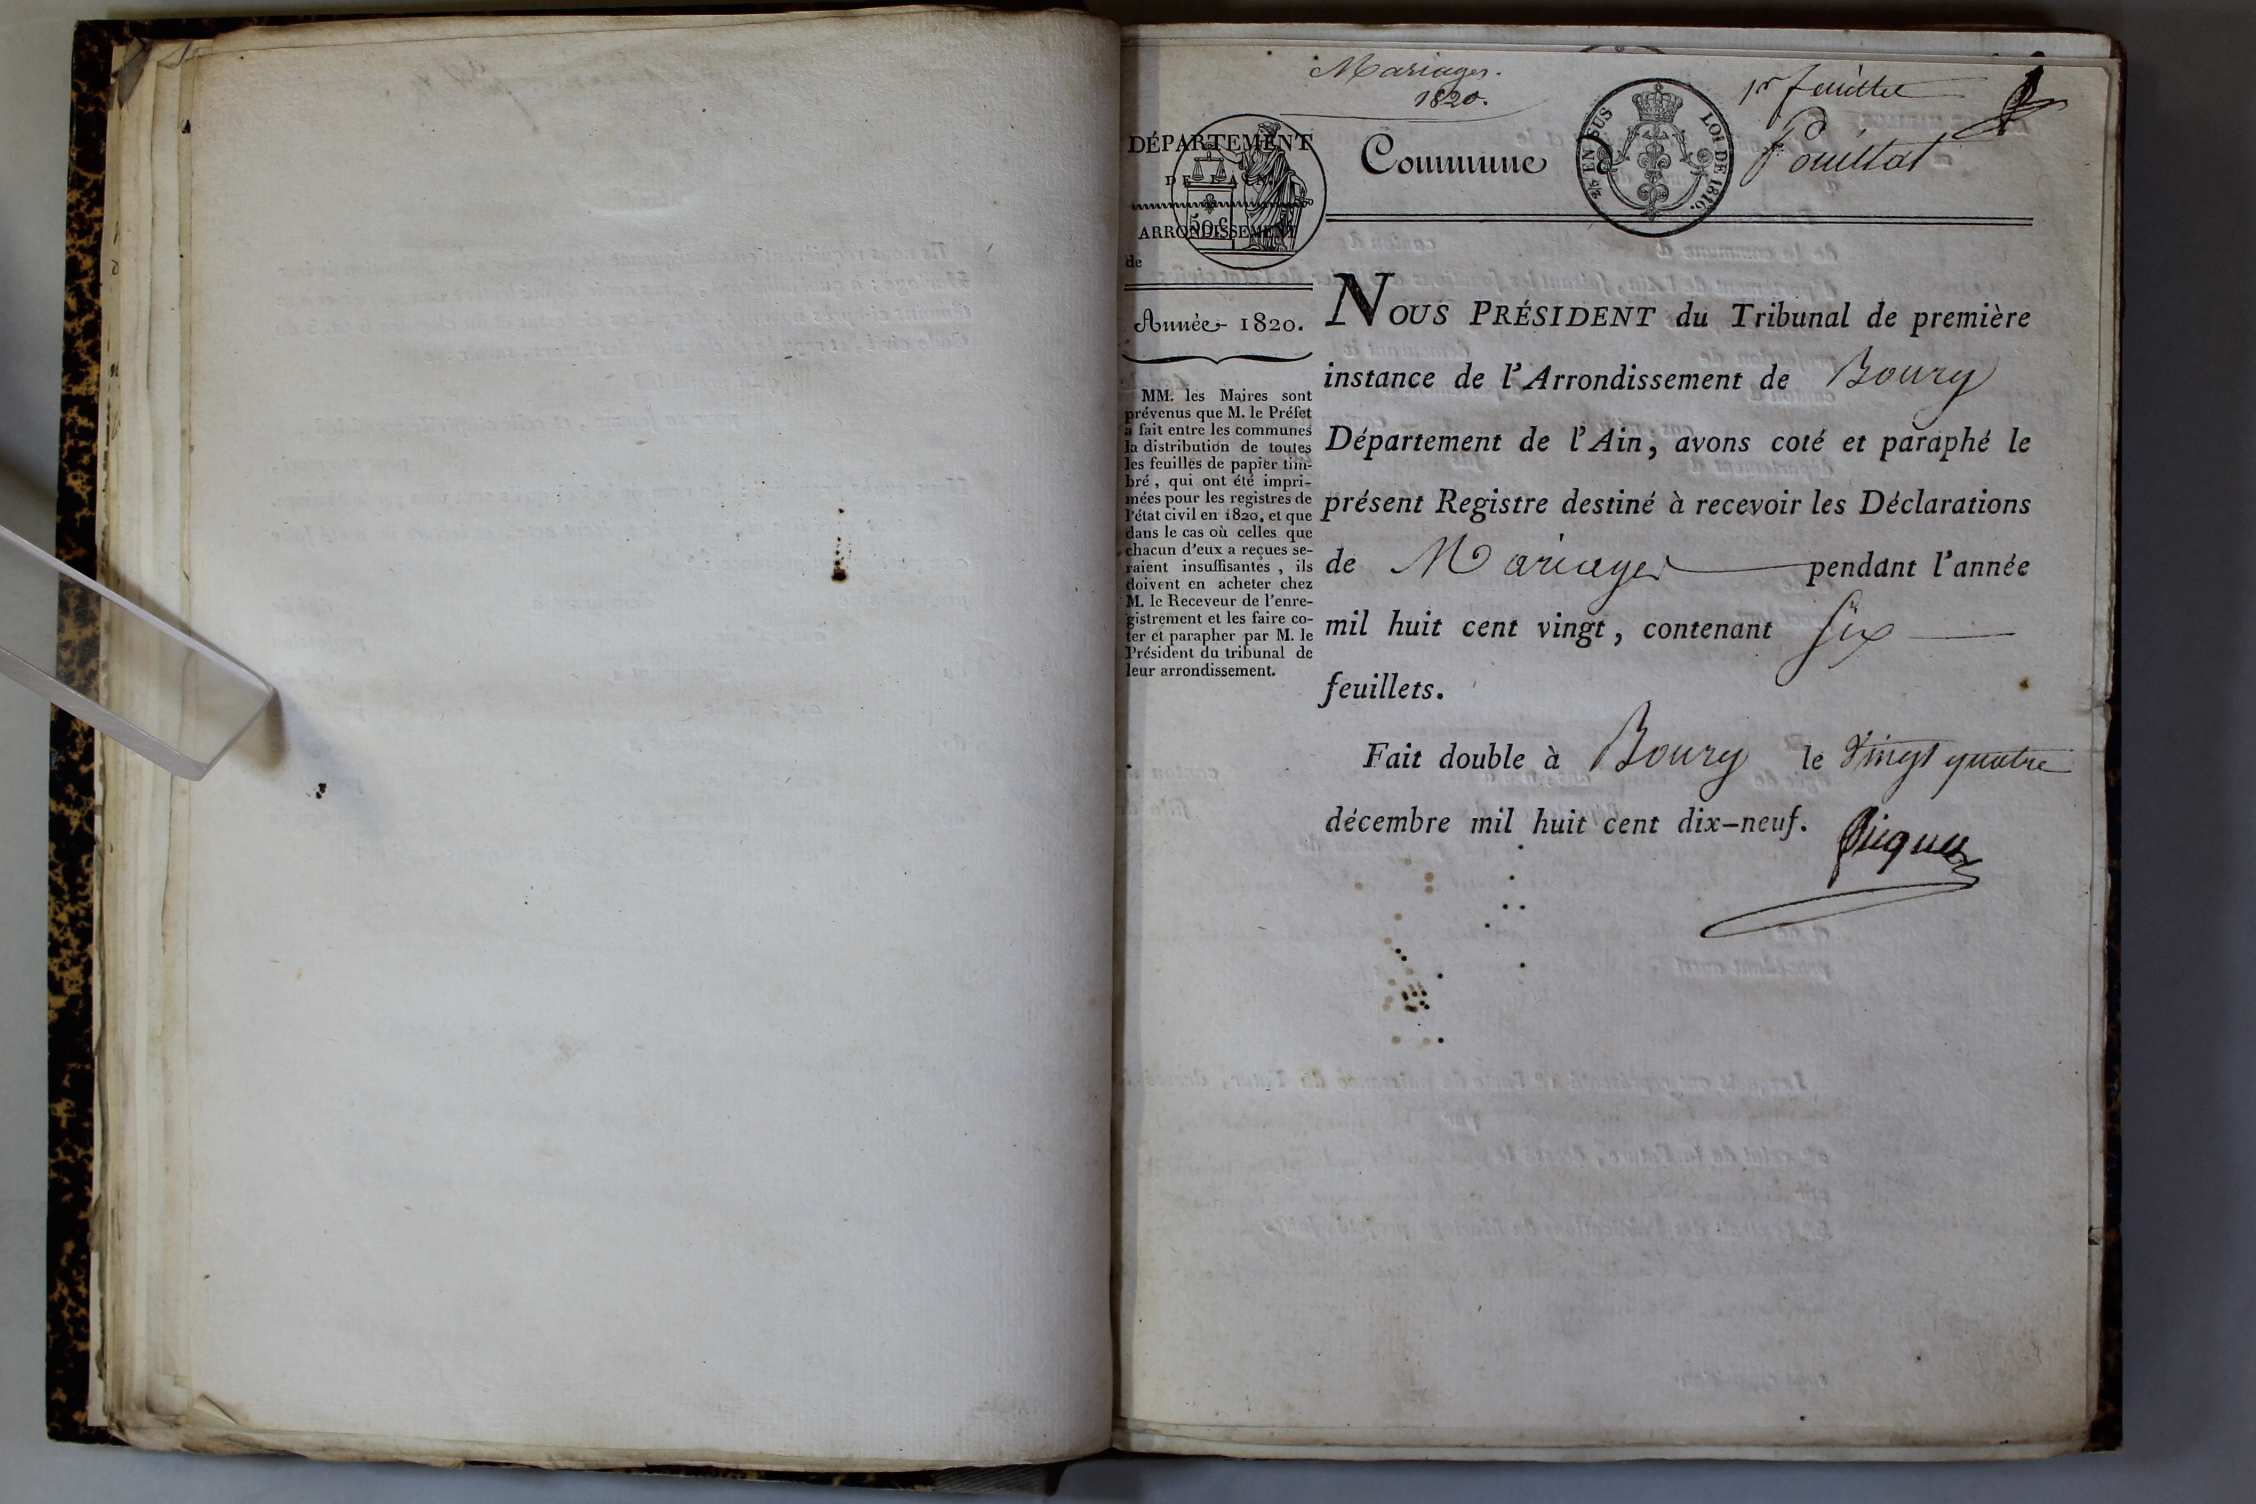 Mariages.
1820.
1er feuillet
DÉPARTEMENT
DE L'AIN.
50 C
ARRONDISSEMENT
de
Commune
24 EN SUS
LOI DE 1816.
Pouillat
Année 1820.
MM. les Maires sont
prévenus que M. le Préfet
a fait entre les communes
la distribution de toutes
les feuilles de papier tim-
bré, qui ont été impri-
mées pour les registres de
l'état civil en 1820, et que
dans le cas où celles que
chacun d'eux a reçues se-
raient insuffisantes, ils
doivent en acheter chez
M. le Receveur de l'enre-
gistrement et les faire co-
ter et parapher par M. le
Président du tribunal de
leur arrondissement.
NOUS PRÉSIDENT du Tribunal de première
instance de l'Arrondissement de Bourg
Département de l'Ain, avons coté et paraphé le
présent Registre destiné à recevoir les Déclarations
de Mariages pendant l'année
mil huit cent vingt, contenant Six
feuillets.
Fait double à Bourg le Vingt quatre
décembre mil huit cent dix-neuf.
Picquet